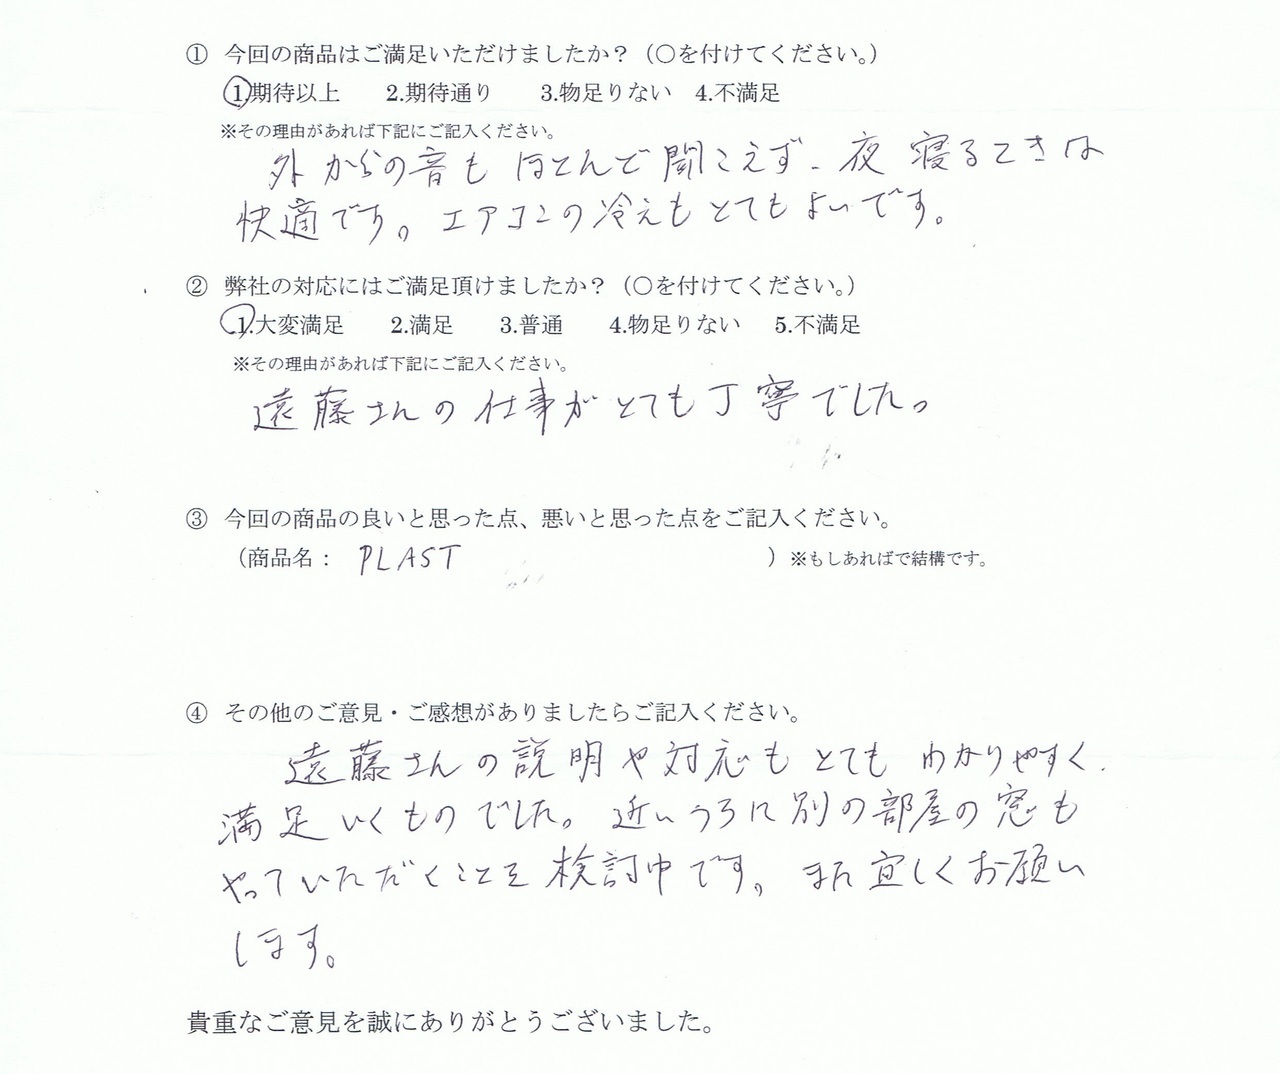 ① 今回の商品はご満足いただけましたか？（○を付けてください。）
1.期待以上 2.期待通り 3.物足りない 4.不満足
※その理由があれば下記にご記入ください。
外からの音もほとんど聞こえず、夜寝るときは
快適です。エアコンの冷えもとてもよいです。
② 弊社の対応にはご満足頂けましたか？（○を付けてください。）
1.大変満足 2.満足 3.普通 4.物足りない 5.不満足
※その理由があれば下記にご記入ください。
遠藤さんの仕事がとても丁寧でした。
③ 今回の商品の良いと思った点、悪いと思った点をご記入ください。
（商品名： PLAST ）※もしあればで結構です。
④ その他のご意見・ご感想がありましたらご記入ください。
遠藤さんの説明や対応もとてもわかりやすく、
満足いくものでした。近いうちに別の部屋の窓も
やっていただくことを検討中です。また宜しくお願い
します。
貴重なご意見を誠にありがとうございました。